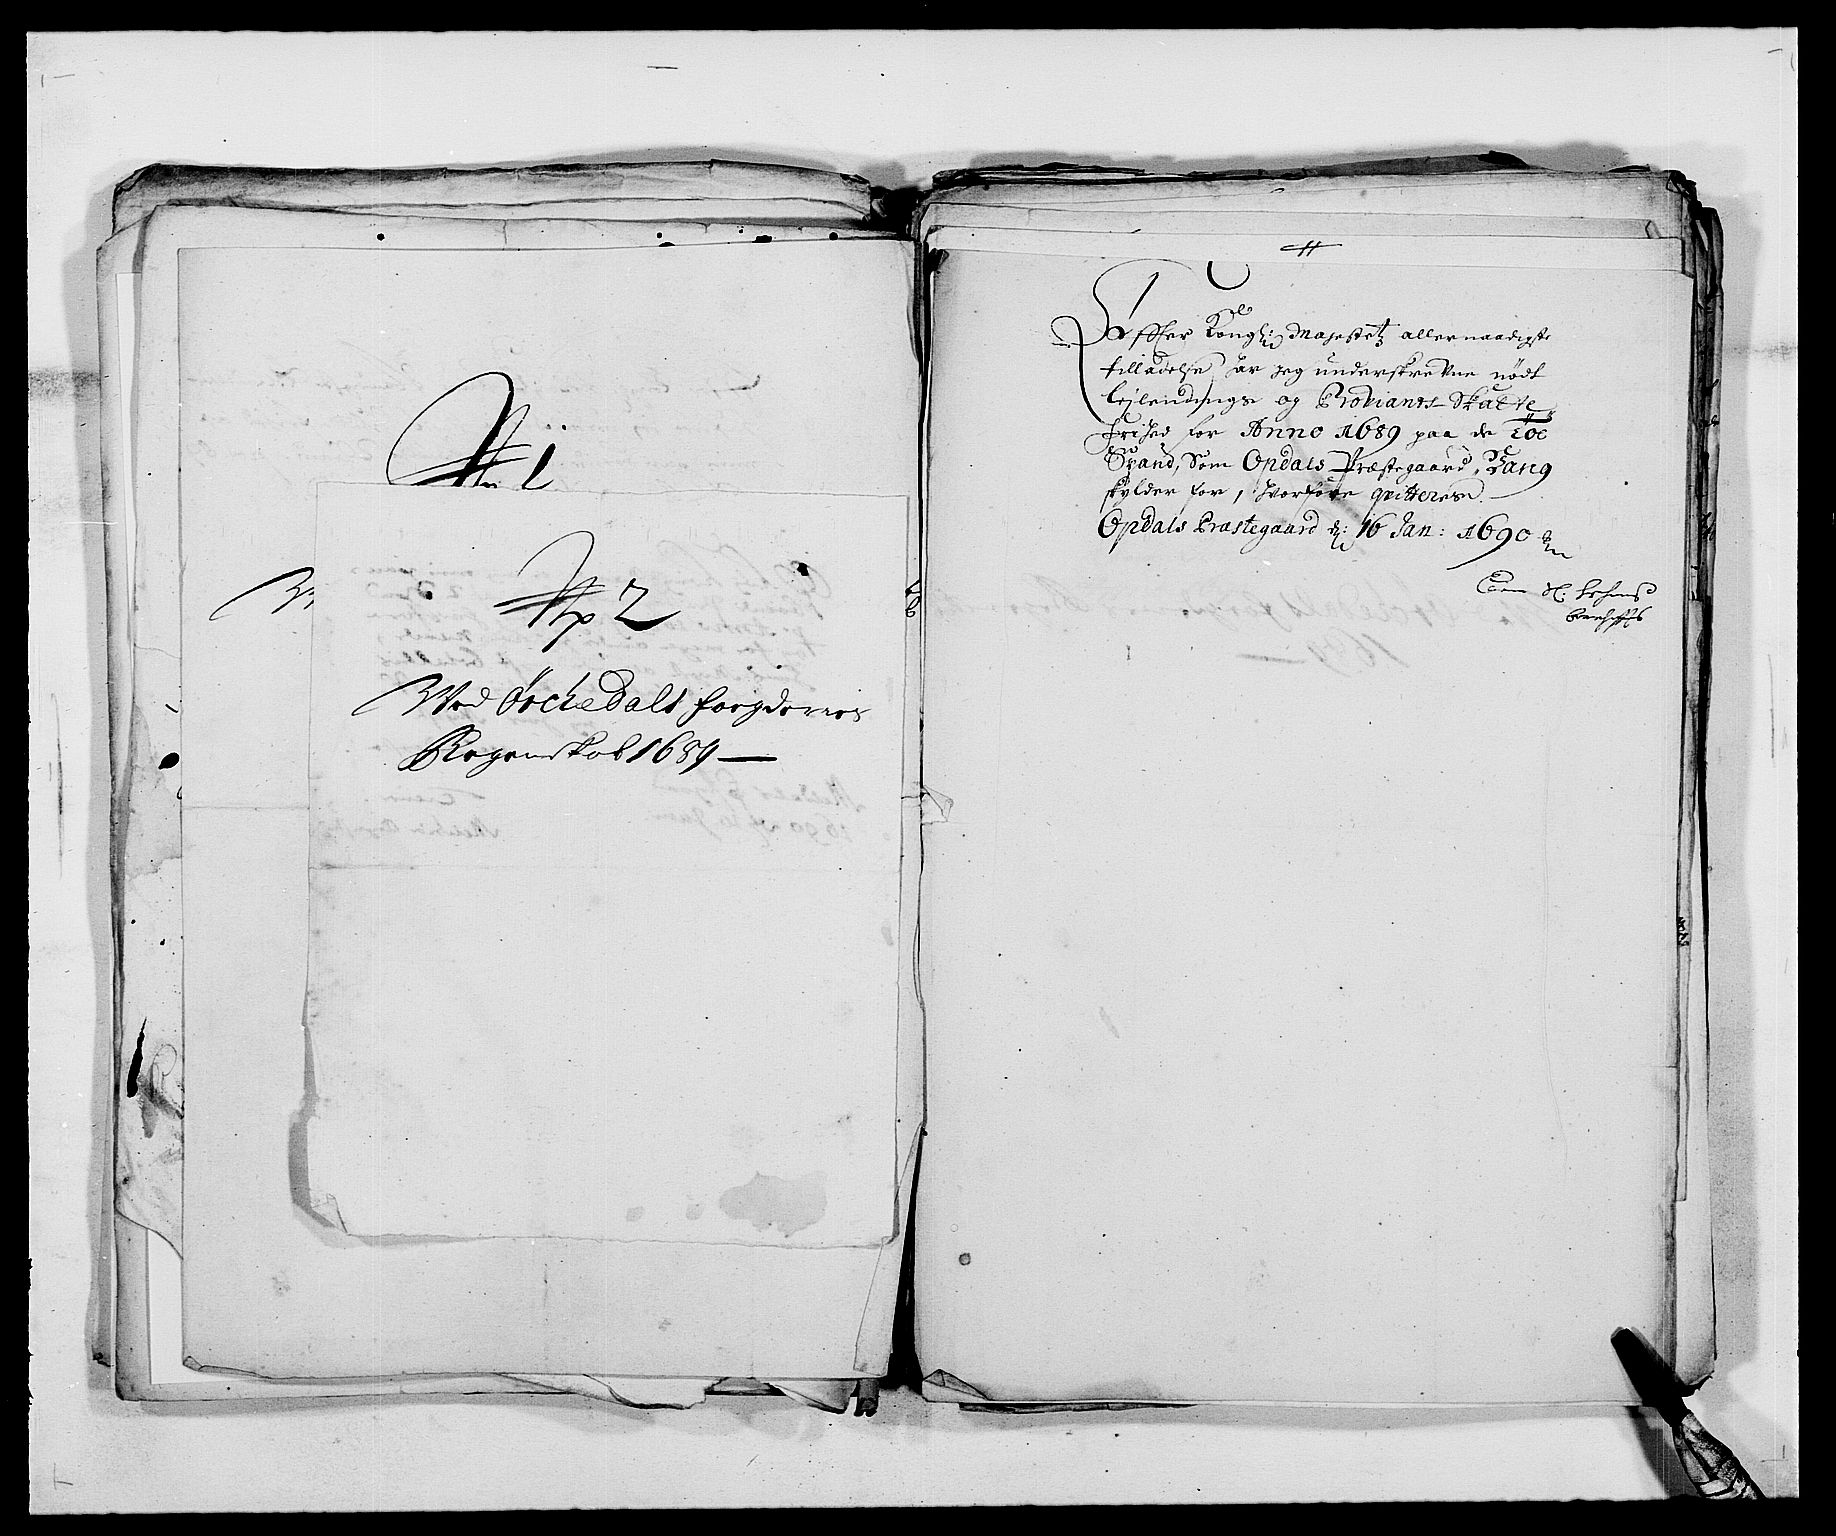 No 1
No 2
Wed Örckedals fogderies
Regenskab 1689
Effter Kongl: Mayestetz allernaadigste
tilladelse har jeg underskrefne nödt
lejlendings og Proviants-Skatte
frihed for Anno 1689 paa de Toe
Spand, Som Opdals Præstegaard, Lang
skylder for, hvorfore qvitteres.
Opdals Præstegaard d: 16 Jan: 1690